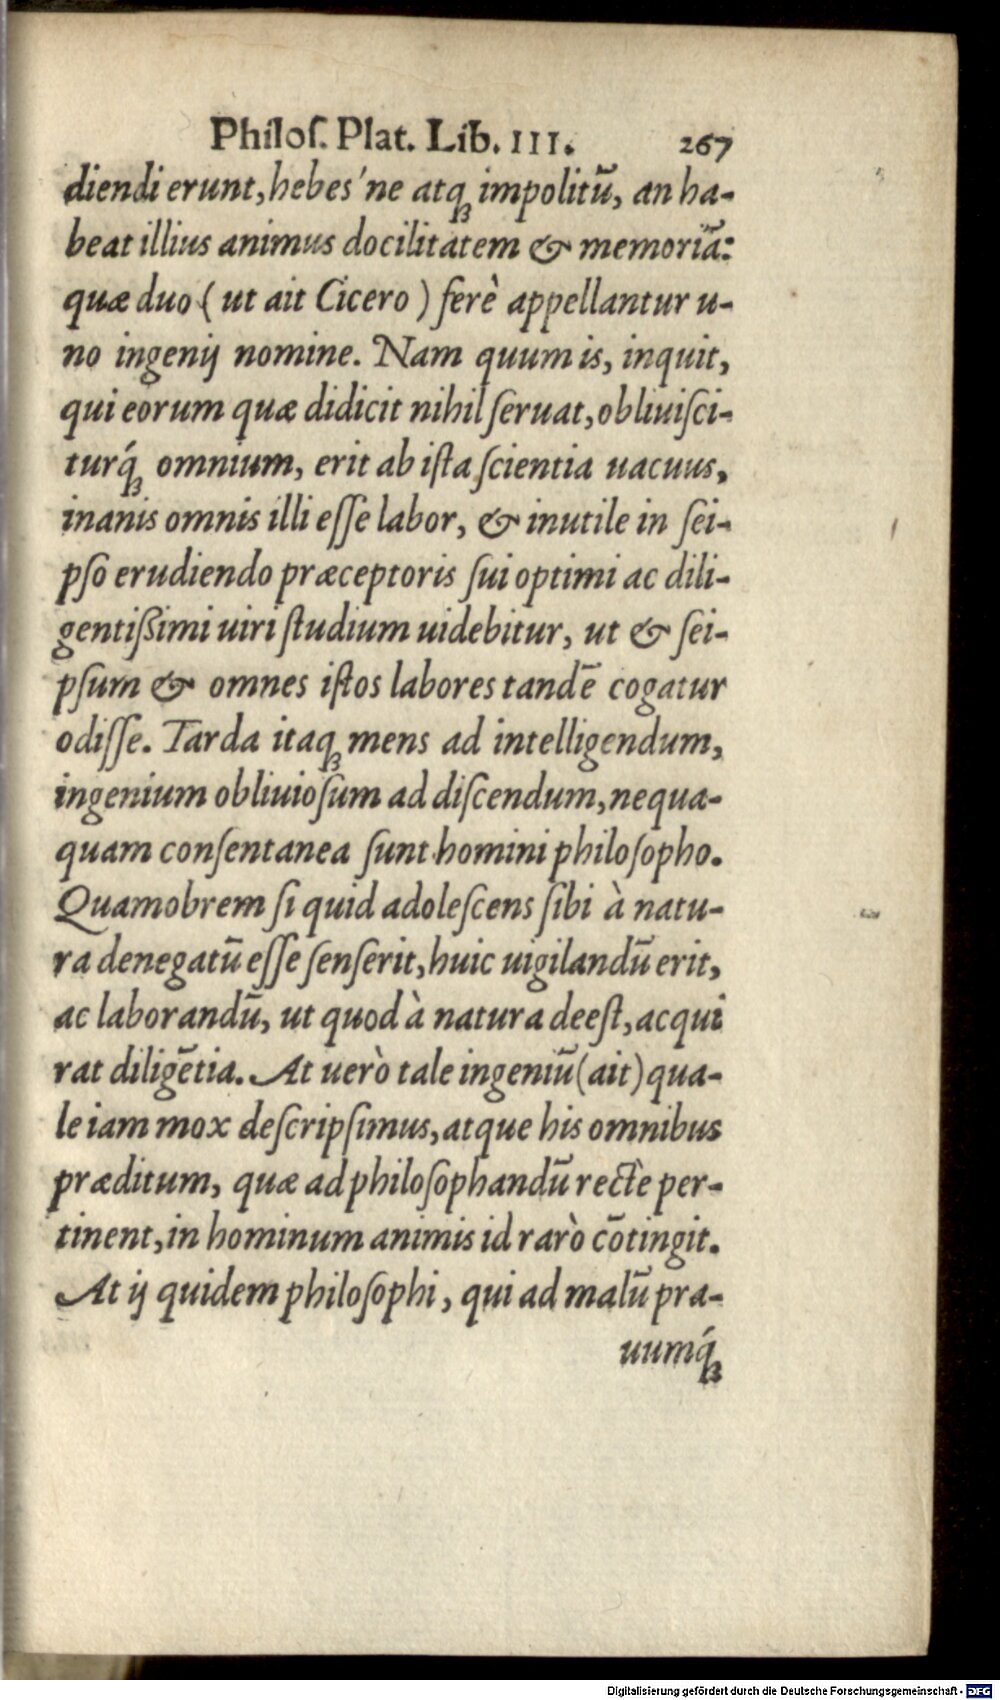 Philoſ. Plat. Lib. III. 267
diendi erunt, hebes'ne atqꝫ impolitū, an ha-
beat illius animus docilitatem & memoriā:
quæ duo (ut ait Cicero) ferè appellantur u-
no ingenij nomine. Nam quum is, inquit,
qui eorum quæ didicit nihil ſeruat, obliuiſci-
turq́ꝫ omnium, erit ab iſta ſcientia uacuus,
inanis omnis illi eſſe labor, & inutile in ſei-
pſo erudiendo præceptoris ſui optimi ac dili-
gentißimi uiri ſtudium uidebitur, ut & ſei-
pſum & omnes iſtos labores tandē cogatur
odiſſe. Tarda itaqꝫ mens ad intelligendum,
ingenium obliuioſum ad diſcendum, nequa-
quam conſentanea ſunt homini philoſopho.
Quamobrem ſi quid adoleſcens ſibi à natu-
ra denegatū eſſe ſenſerit, huic uigilandū erit,
ac laborandū, ut quod à natura deeſt, acqui
rat diligētia. At uerò tale ingeniū (ait) qua-
le iam mox deſcripſimus, atque his omnibus
præditum, quæ ad philoſophandū rectè per-
tinent, in hominum animis id rarò cōtingit.
At ij quidem philoſophi, qui ad malū pra-
uumq́ꝫ
Digitalisierung gefördert durch die Deutsche Forschungsgemeinschaft - DFG